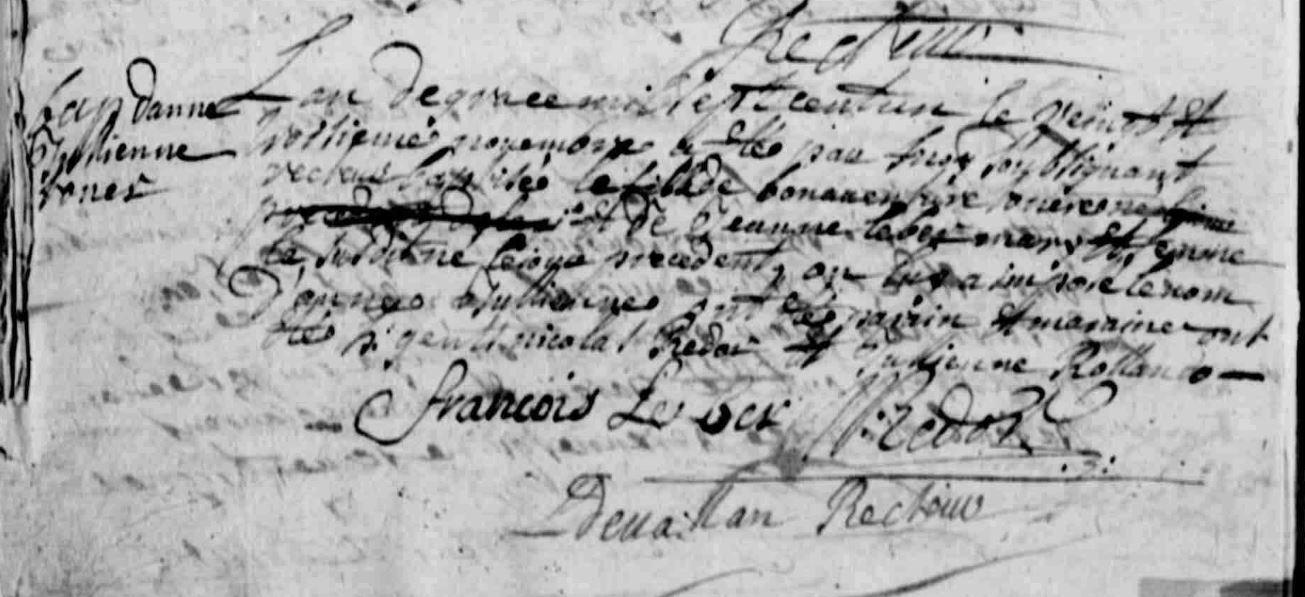 Recteur
bap danne
Jullienne
L an de grace mil sept cent un le veint et
troisieme novembre a esté par moy soubsignant
recteur baptisé la fille de bonaventure
et de Jeanne leber mary et femme
le jour precedent, on luy a imposé le nom
d'anne Jullienne ont été parin et maraine ont
Nicolas Redor et Jullienne Rolland
francois Le ber N: Redor
Devallan Recteur